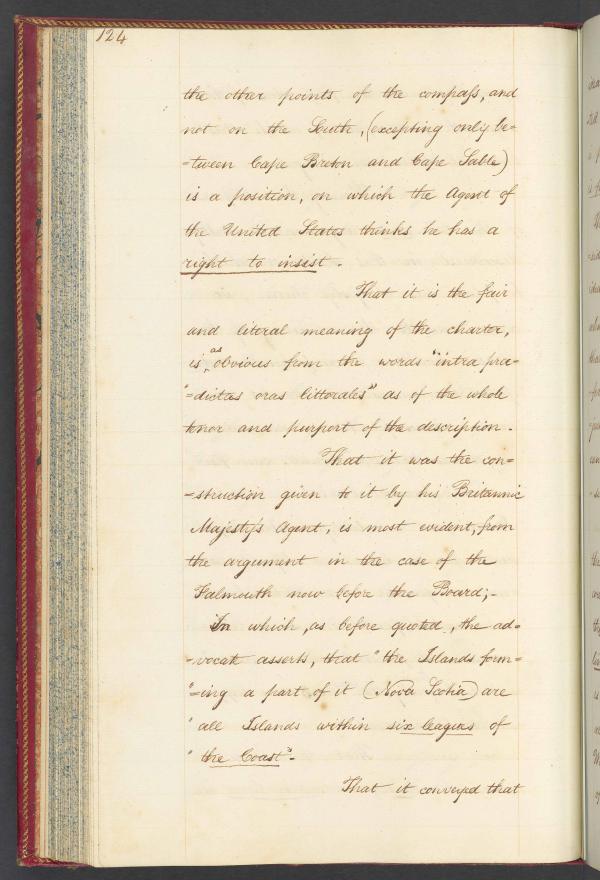 124
the other points of the compaſs, and
not on the South, (excepting only be-
-tween Cape Breton and Cape Sable)
is a position, on which the Agent of
the United States thinks he has a
right to insist.
That it is the fair
and literal meaning of the charter,
is as obvious from the words "intra præ-
"=dictas oras littorales" as of the whole
tenor and purport of the description.
That it was the con=
=struction given to it by his Britannic
Majesty's Agent, is most evident, from
the argument in the case of the
Falmouth now before the Board;-
In which, as before quoted, the ad-
-vocate asserts, that "the Islands form=
"=ing a part of it (Nova Scotia) are
" all Islands within six leagues of
" the Coast"-
That it conveyed that